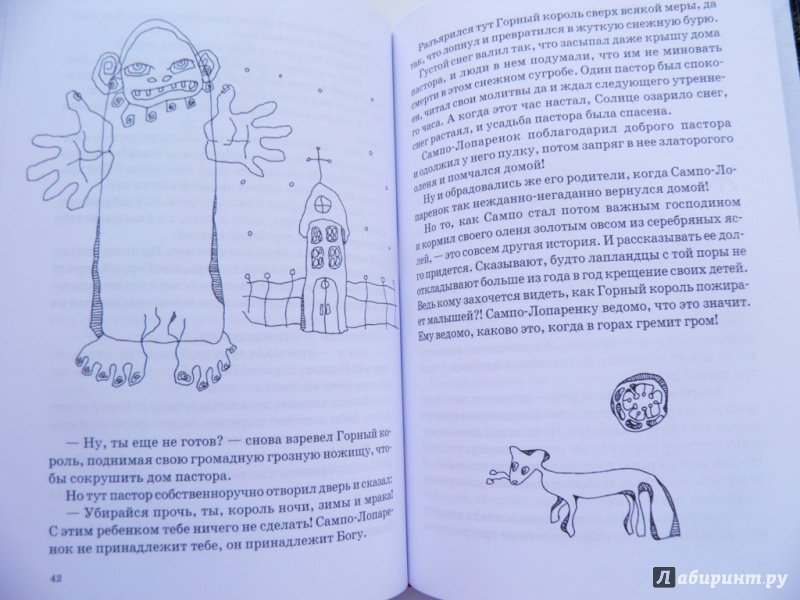 — Ну, ты еще не готов? — снова взревел Горный ко-
роль, поднимая свою громадную грозную ножищу, что-
бы сокрушить дом пастора.
Но тут пастор собственноручно отворил дверь и сказал:
— Убирайся прочь, ты, король ночи, зимы и мрака!
С этим ребенком тебе ничего не сделать! Сампо-Лопаре-
нок не принадлежит тебе, он принадлежит Богу.
42
Разъярился тут Горный король сверх всякой меры, да
так, что лопнул и превратился в жуткую снежную бурю.
Густой снег валил так, что засыпал даже крышу дома
пастора, и люди в нем подумали, что им не миновать
смерти в этом снежном сугробе. Один пастор был споко-
ен, читал свои молитвы да и ждал следующего утренне-
го часа. А когда этот час настал, Солнце озарило снег,
снег растаял, и усадьба пастора была спасена.
Сампо-Лопаренок поблагодарил доброго пастора
и одолжил у него пулку, потом запряг в нее златорогого
оленя и помчался домой!
Ну и обрадовались же его родители, когда Сампо-Ло-
паренок так нежданно-негаданно вернулся домой!
Но то, как Сампо стал потом важным господином
и кормил своего оленя золотым овсом из серебряных яс-
лей, — это совсем другая история. И рассказывать ее дол-
го придется. Сказывают, будто лапландцы с той поры не
откладывают больше из года в год крещение своих детей.
Ведь кому захочется видеть, как Горный король пожира-
ет малышей?! Сампо-Лопаренку ведомо, что это значит.
Ему ведомо, каково это, когда в горах гремит гром!
Лабиринт.ру